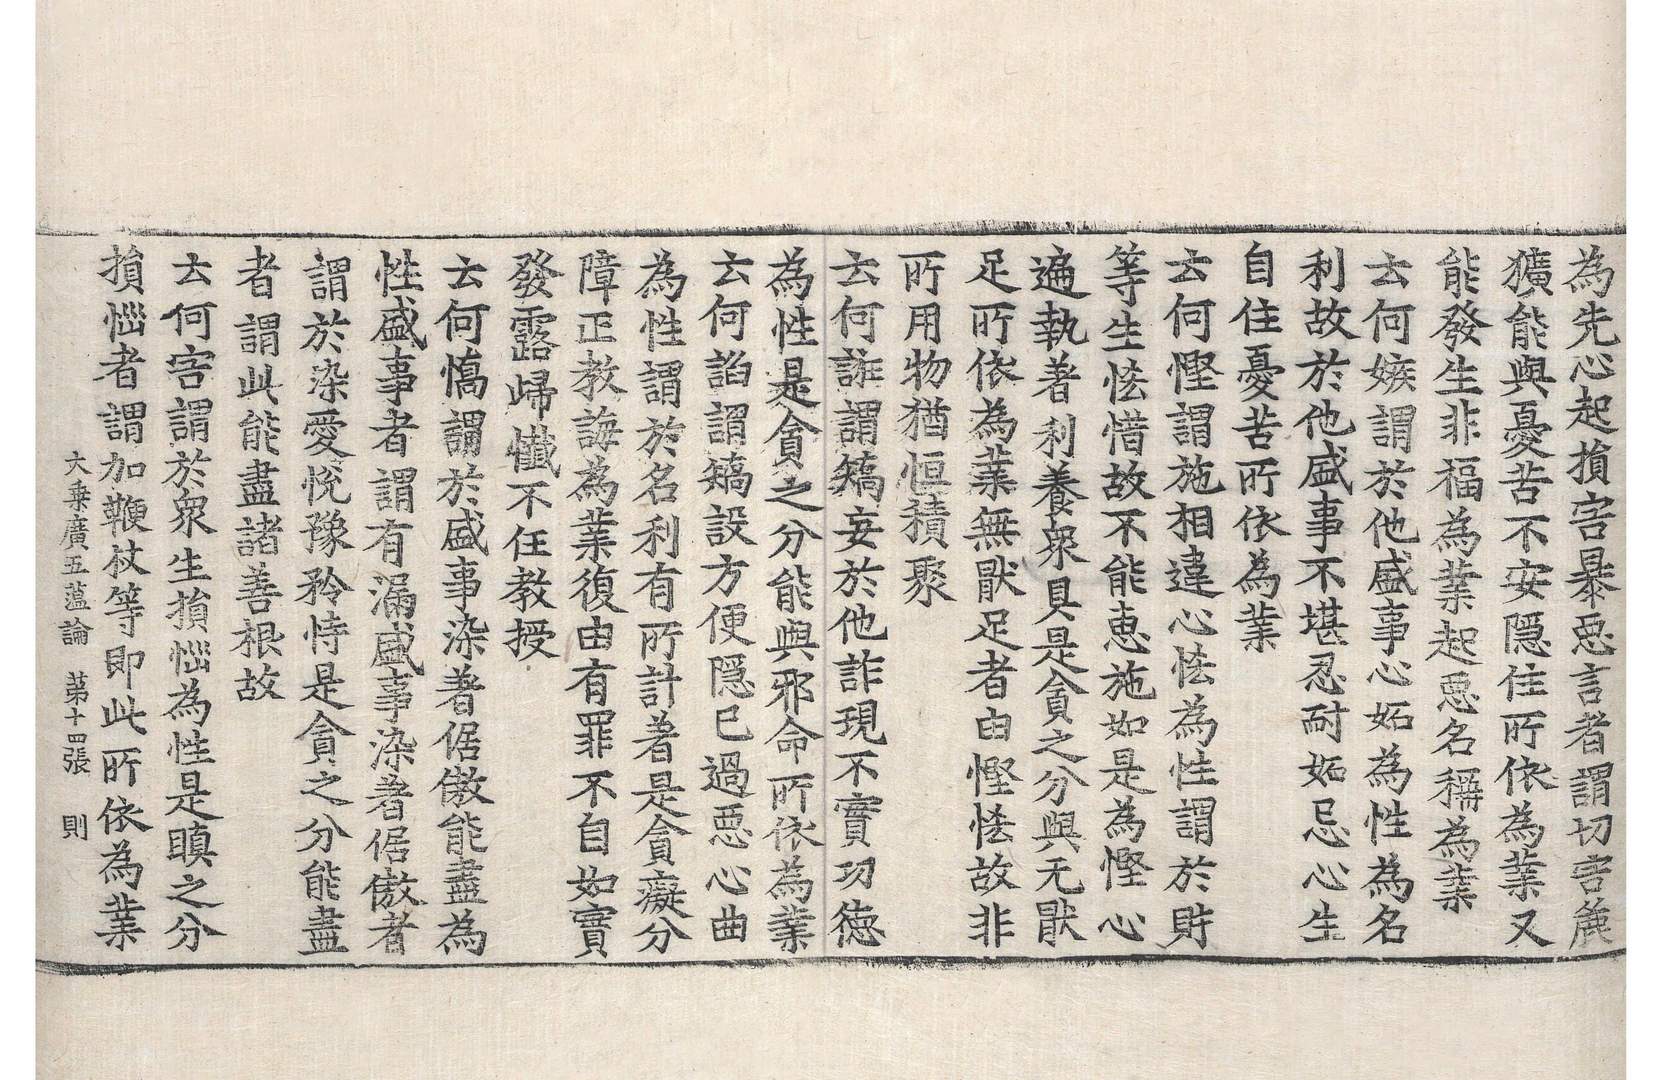 為先心起損害暴惡言者謂切害麁
獷能與憂苦不安隱住所依為業又
能發生非福為業起惡名稱為業
云何嫉謂於他盛事心妬為性為名
利故於他盛事不堪忍耐妬忌心生
自住憂苦所依為業
云何慳謂施相違心恡為性謂於財
等生恡惜故不能惠施如是為慳心
遍執著利養衆具是貪之分與无猒
足所依為業無猒足者由慳恡故非
所用物猶恒積聚
云何誑謂矯妄於他詐現不實功德
為性是貪之分能與邪命所依為業
云何諂謂矯設方便隱己過惡心曲
為性謂於名利有所計著是貪癡分
障正教誨為業復由有罪不自如實
發露歸懺不任教授
云何憍謂於盛事染著倨傲能盡為
性盛事者謂有漏盛事染著倨傲者
謂於染愛悅豫矜恃是貪之分能盡
者謂此能盡諸善根故
云何害謂於衆生損惱為性是瞋之分
損惱者謂加鞭杖等即此所依為業
大乗廣五蘊論 第十四張 則